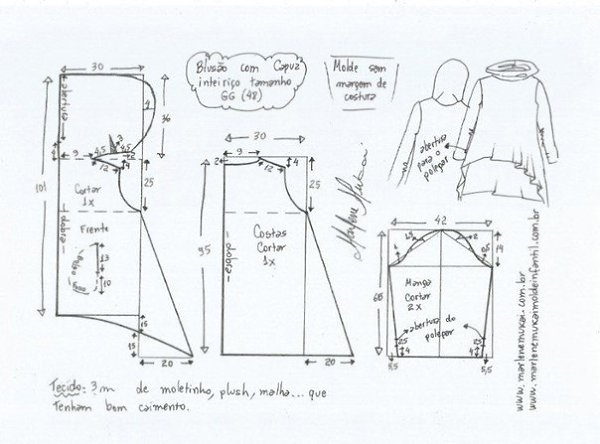 Blusão com Capuz
inteiriço tamanho
GG (48)
Molde sem
margem de
costura
30
abertura
4
36
3
4,5
4,5
2
9
12
4
25
101
Cortar
1x
dobra
Frente
bolso
13
10
15
15
20
30
2
9
12
4
25
95
dobra
Costas
Cortar
1x
20
abertura
para o
polegar
42
2
0,5
14
60
Manga
Cortar
2x
abertura do
polegar
2,5
4
2,5
4
5,5
5,5
www.marlenemukai.com.br
www.marlenemukaimoldeinfantil.com.br
Tecido: 3m de moletinho, plush, malha... que
Tenham bom caimento.